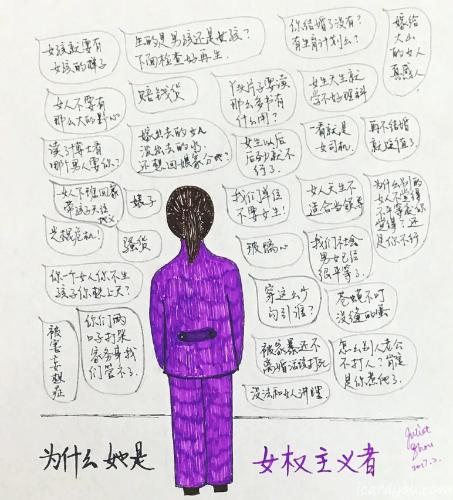 女孩就要有
女孩的样子
生的是男孩还是女孩?
下面检查好再生.
你结婚了没有?
有生育计划么?
嫁给
大山
的女人
真感人
女人不要有
那么大的野心
赔钱货
丫头片子要读
那么多书有
什么用?
女生天生就
学不好理科
读了博士看
哪个男人要你?
嫁出去的女儿
泼出去的水
还想回娘家分地?
女生以后
后劲就不
行了.
一看就是
女司机.
再不结婚
就贬值了.
女人下班回家
带孩子天经
地义
婊子
我们单位
不要女生!
女人天生不
适合当领导
为什么别的
女人不觉得
不平等就你
觉得? 还
是你不行
光棍危机!
骚货
玻璃心
我们社会
男女已经
很平等了.
你一个女人你不生
孩子你想上天?
穿这么少
勾引谁?
苍蝇不叮
没缝的蛋
被害妄想症
你们两
口子打架
家务事我
们管不了.
被家暴还不
离婚活该打死
怎么别人老公
不打人? 肯定
是你惹他了.
没法和女人讲理
为什么她是
女权主义者
Juliet
Zhou
2017.2.